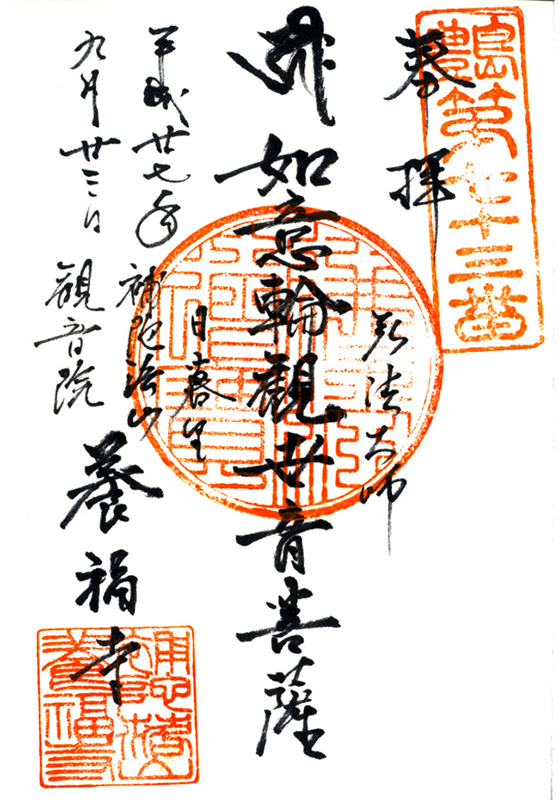 奉拝
豐島第七十三番
弘法大師
如意輪觀世音菩薩
日暮里
平成廿七年
九月廿三日
補陀落山
観音院
養福寺